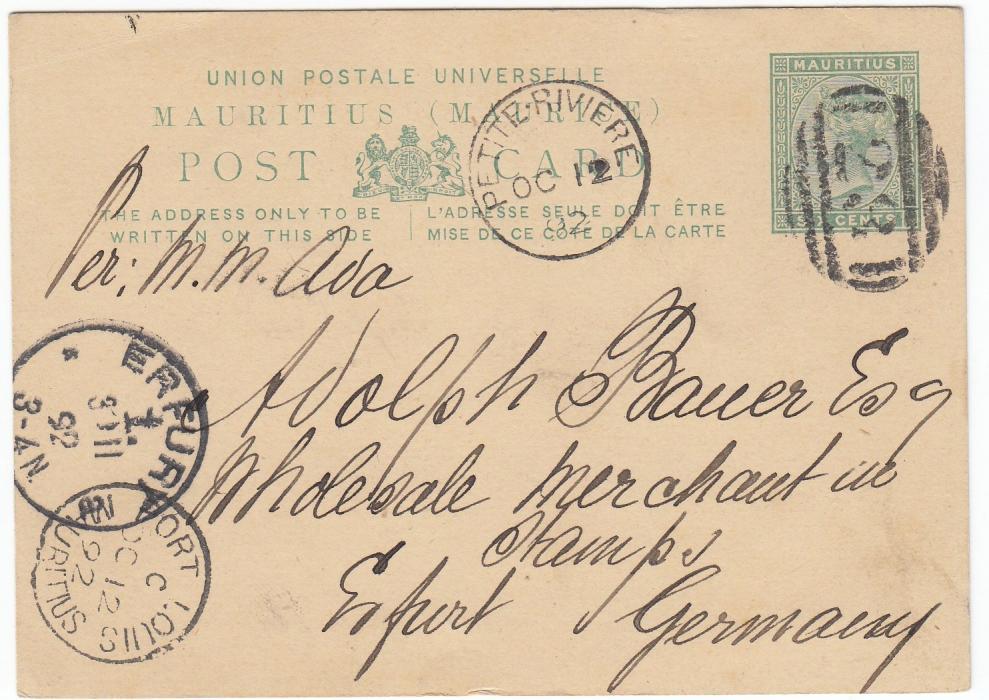 UNION POSTALE UNIVERSELLE
MAURITIUS (MAURICE)
POST CARD
THE ADDRESS ONLY TO BE
WRITTEN ON THIS SIDE
L'ADRESSE SEULE DOIT ÊTRE
MISE DE CE CÔTÉ DE LA CARTE
MAURITIUS
CENTS
PETITE-RIVIERE
OC 12
92
Per: M.M. Ada
Adolph Bauer Esq
Wholesale Merchant in
Stamps
Erfurt Germany
ERFURT
1
92
3-4N
PORT LOUIS
C
OC 12
92
MAURITIUS